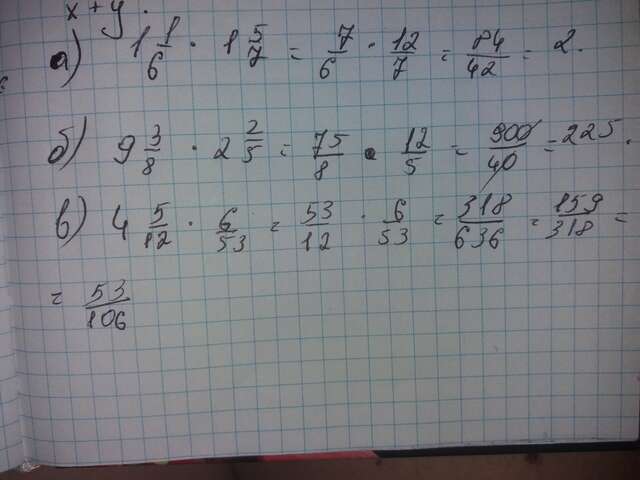 x + y.
а) 1 1/6 · 1 5/7 = 7/6 · 12/7 = 84/42 = 2.
б) 9 3/8 · 2 2/5 = 75/8 · 12/5 = 900/40 = 225.
в) 4 5/12 · 6/53 = 53/12 · 6/53 = 318/636 = 159/318 =
= 53/106